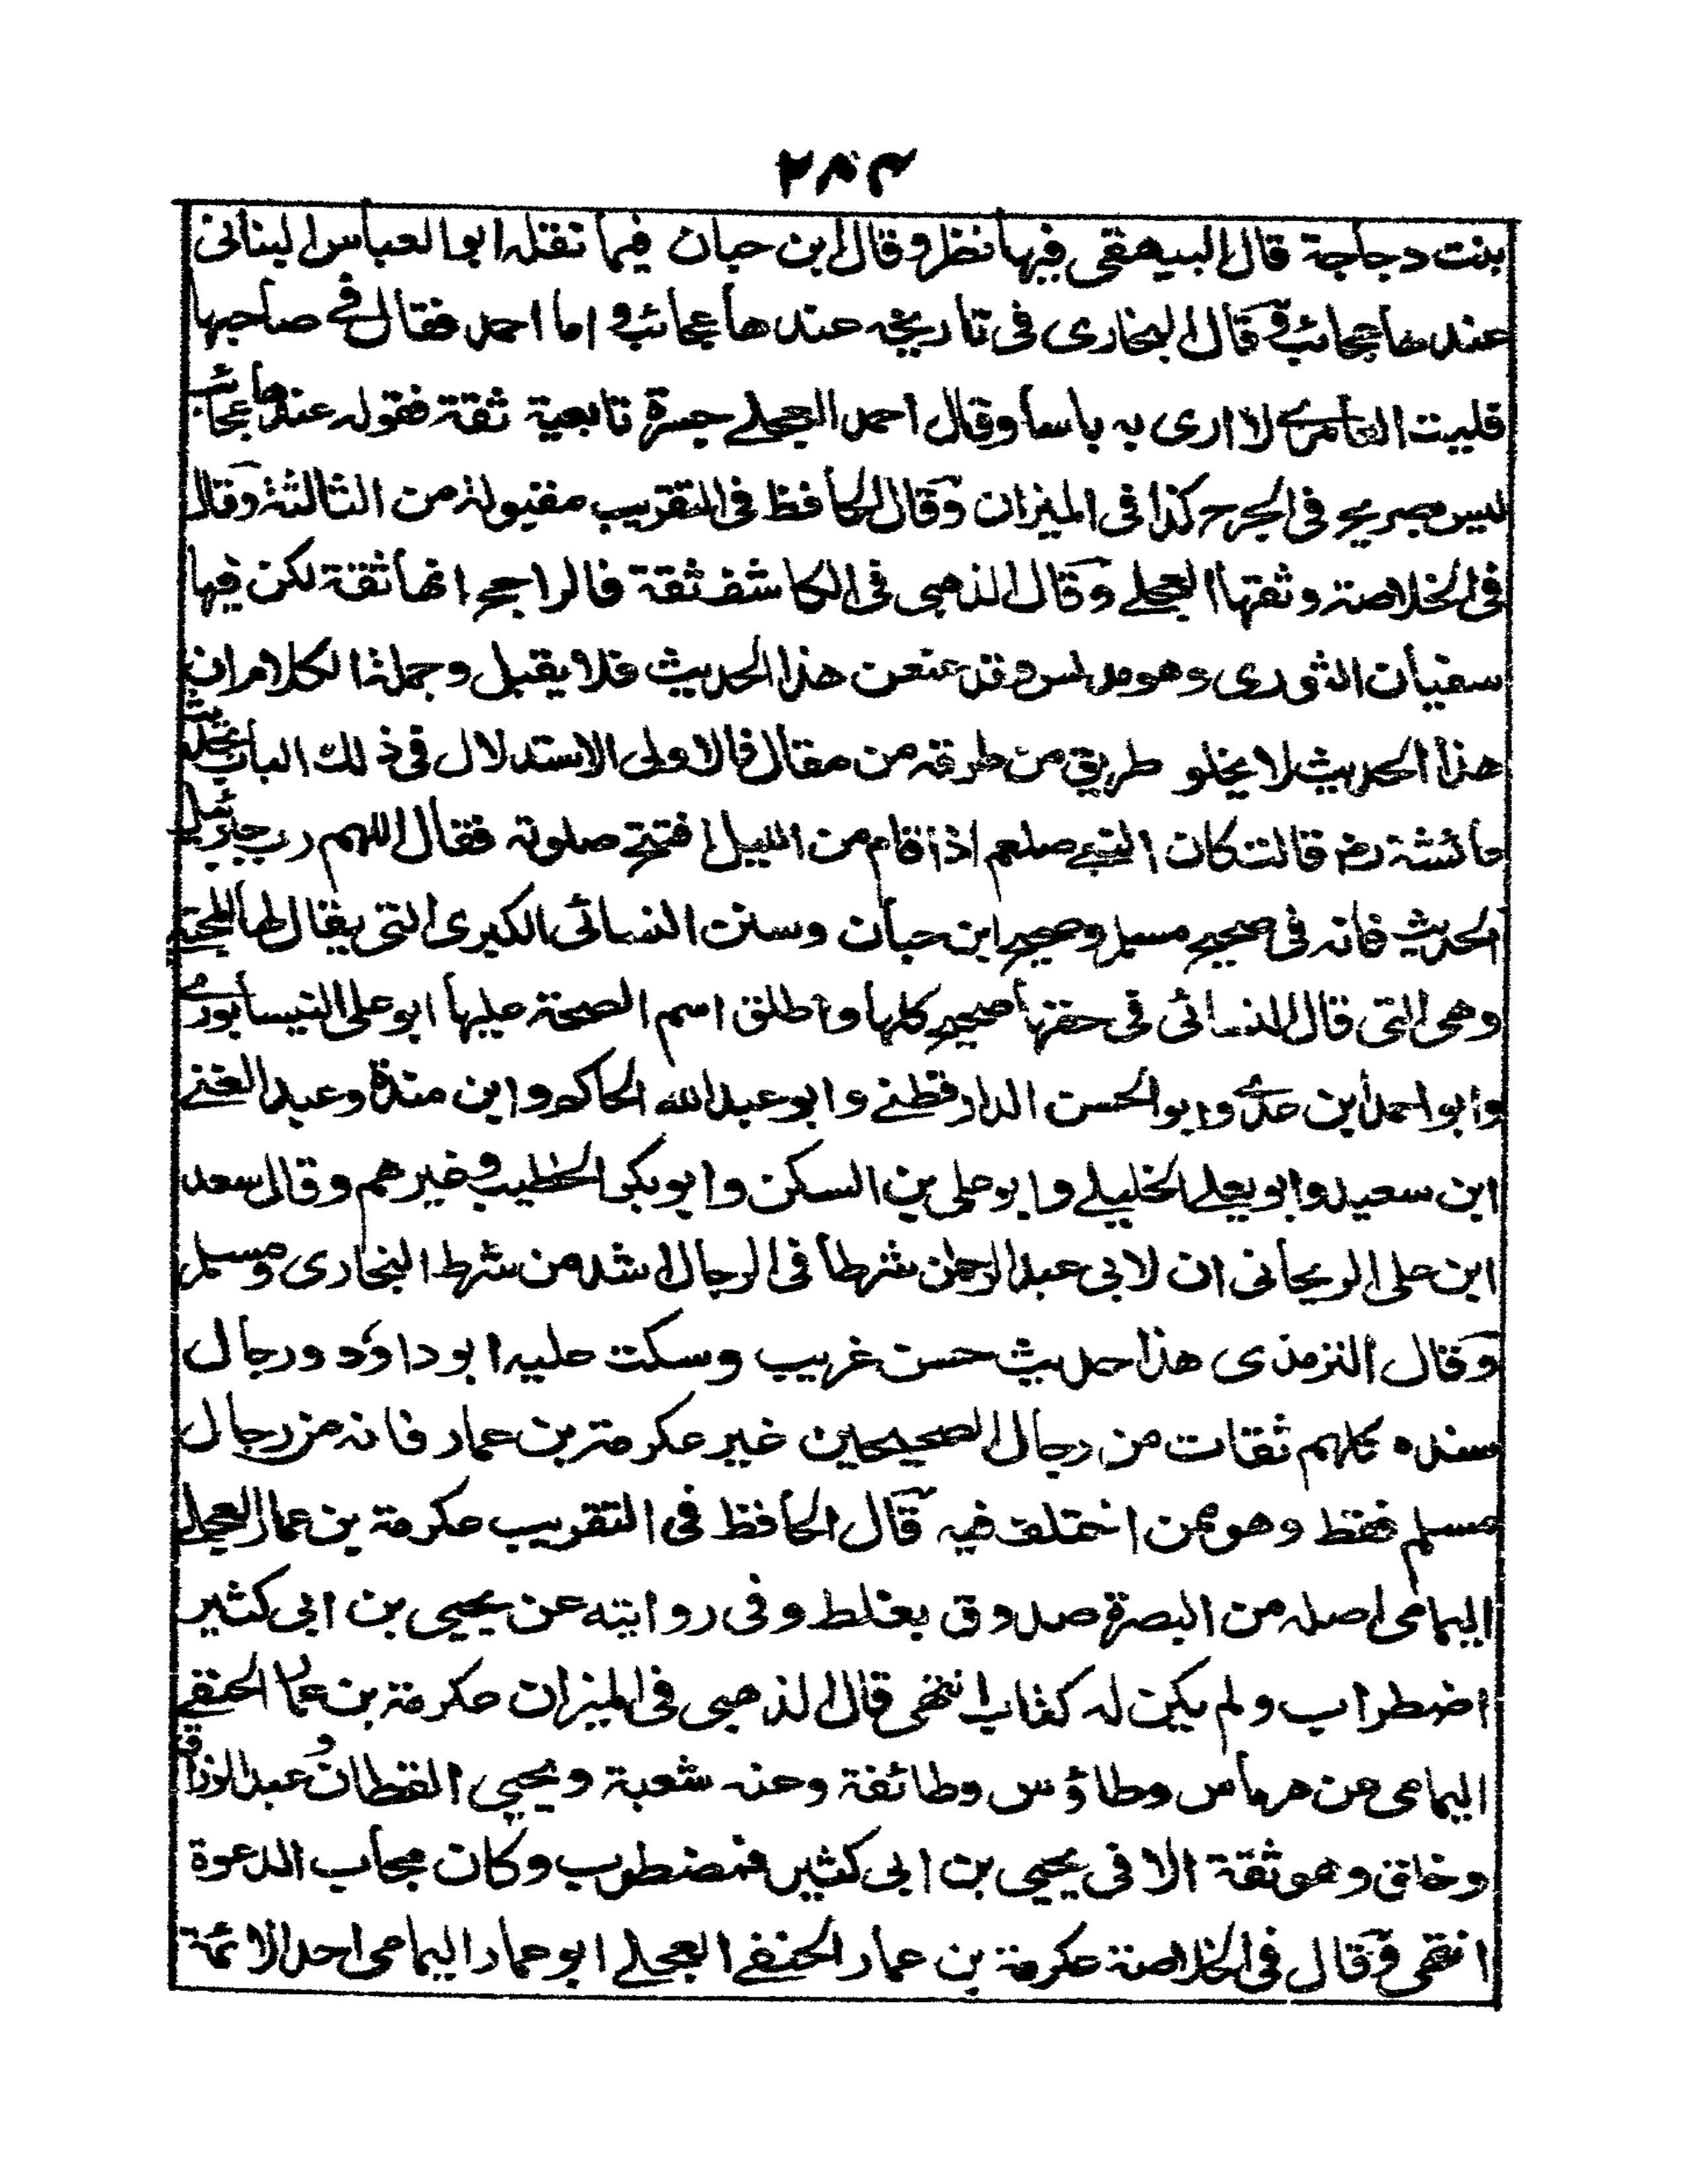 ٢٨٤
بنت دجاجة قال البيهقى فيها نظر وقال ابن حبان فيما نقله ابو العباس البنانى
عندها عجائب وقال البخارى فى تاريخه عندها عجائب و اما احمد فقال فے صاحبها
فليت العامرے لا ارى به باسا وقال احمد العجلے جسرة تابعية ثقة فقوله عندها عجائب
ليس بصريح فى الجرح كذا فى الميزان وقال الحافظ فى التقريب مقبولة من الثالثة وقال
فى الخلاصة وثقها العجلے وقال الذهبى فى الكاشف ثقة فالراجح انها ثقة لكن فيها
سفيان الثورى وهو مدلس وقد عنعن هذا الحديث فلا يقبل وجملة الكلام ان
هذا الحديث لا يخلو طريق من طرقه من مقال فالاولى الاستدلال فى ذلك الباب بحديث
عائشة رض قالت كان النبے صلعم اذا قام من الليل افتتح صلوته فقال اللهم رب جبرئيل
الحديث فانه فى صحيح مسلم وصحيح ابن حبان وسنن النسائى الكبرى التى يقال لها المجتبى
وهى التى قال النسائى فى حقها صحيح كلها واطلق اسم الصحة عليها ابو على النيسابورے
وابو احمد ابن عدے وابو الحسن الدارقطنے وابو عبد الله الحاكم وابن مندة وعبد الغنے
ابن سعيد وابو يعلے الخليلے وابو على بن السكن وابو بكر الخطيب وغيرهم وقال سعد
ابن على الريحانى ان لابى عبد الرحمن شرطا فى الرجال اشد من شرط البخارى ومسلم
وقال الترمذى هذا حديث حسن غريب وسكت عليه ابو داؤد ورجال
سنده كلهم ثقات من رجال الصحيحين غير عكرمة بن عمار فانه من رجال
مسلم فقط وهو ممن اختلف فيه قال الحافظ فى التقريب عكرمة بن عمار العجلے
اليمامى اصله من البصرة صدوق يغلط وفى روايته عن يحيى بن ابى كثير
اضطراب ولم يكن له كتاب انتهى قال الذهبى فى الميزان عكرمة بن عمار الحنفے
اليمامى عن هرماس وطاؤس وطائفة وعنه شعبة ويحيى القطان و عبد الرزاق
وخلق وهو ثقة الا فى يحيى بن ابى كثير فمضطرب وكان مجاب الدعوة
انتهى وقال فى الخلاصة عكرمة بن عمار الحنفے العجلے ابو عمار اليمامى احد الائمة